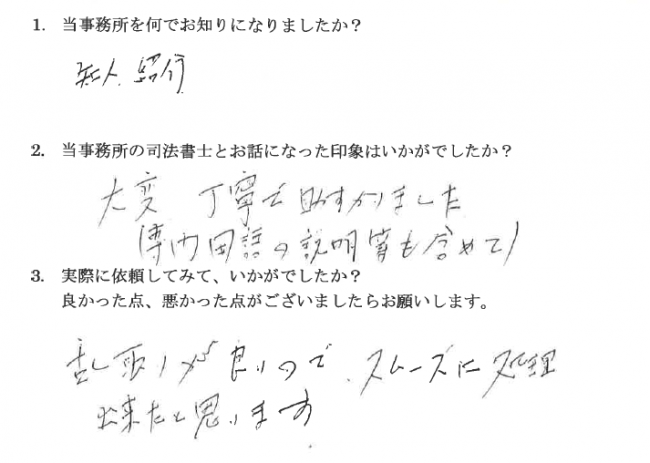 1. 当事務所を何でお知りになりましたか？
知人 紹介
2. 当事務所の司法書士とお話になった印象はいかがでしたか？
大変 丁寧で助すかりました
(専門用語の説明等も含めて)
3. 実際に依頼してみて、いかがでしたか？
良かった点、悪かった点がございましたらお願いします。
が良いので、スムーズに処理
出来たと思います